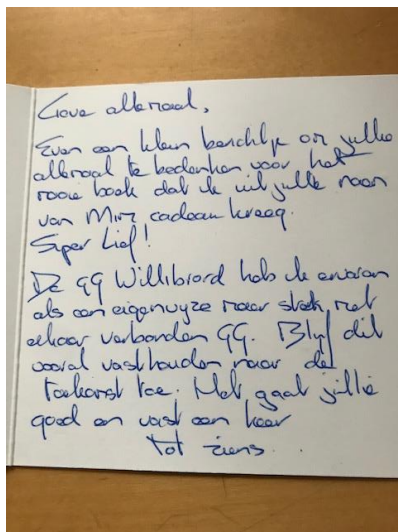 Lieve allemaal,
Even een klein berichtje om jullie
allemaal te bedanken voor het
mooie boek dat ik uit jullie naam
van Mirz cadeau kreeg.
Super lief!
De GG Willibrord heb ik ervaren
als een eigenwijze maar sterk met
elkaar verbonden GG. Blijf dit
vooral vasthouden naar de
toekomst toe. Het gaat jullie
goed en vast een keer
tot ziens.